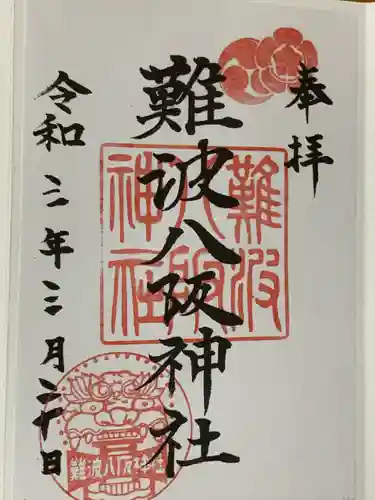 奉拝
難波八阪神社
難波
八阪
神社
令和三年三月二十日
難波八阪神社